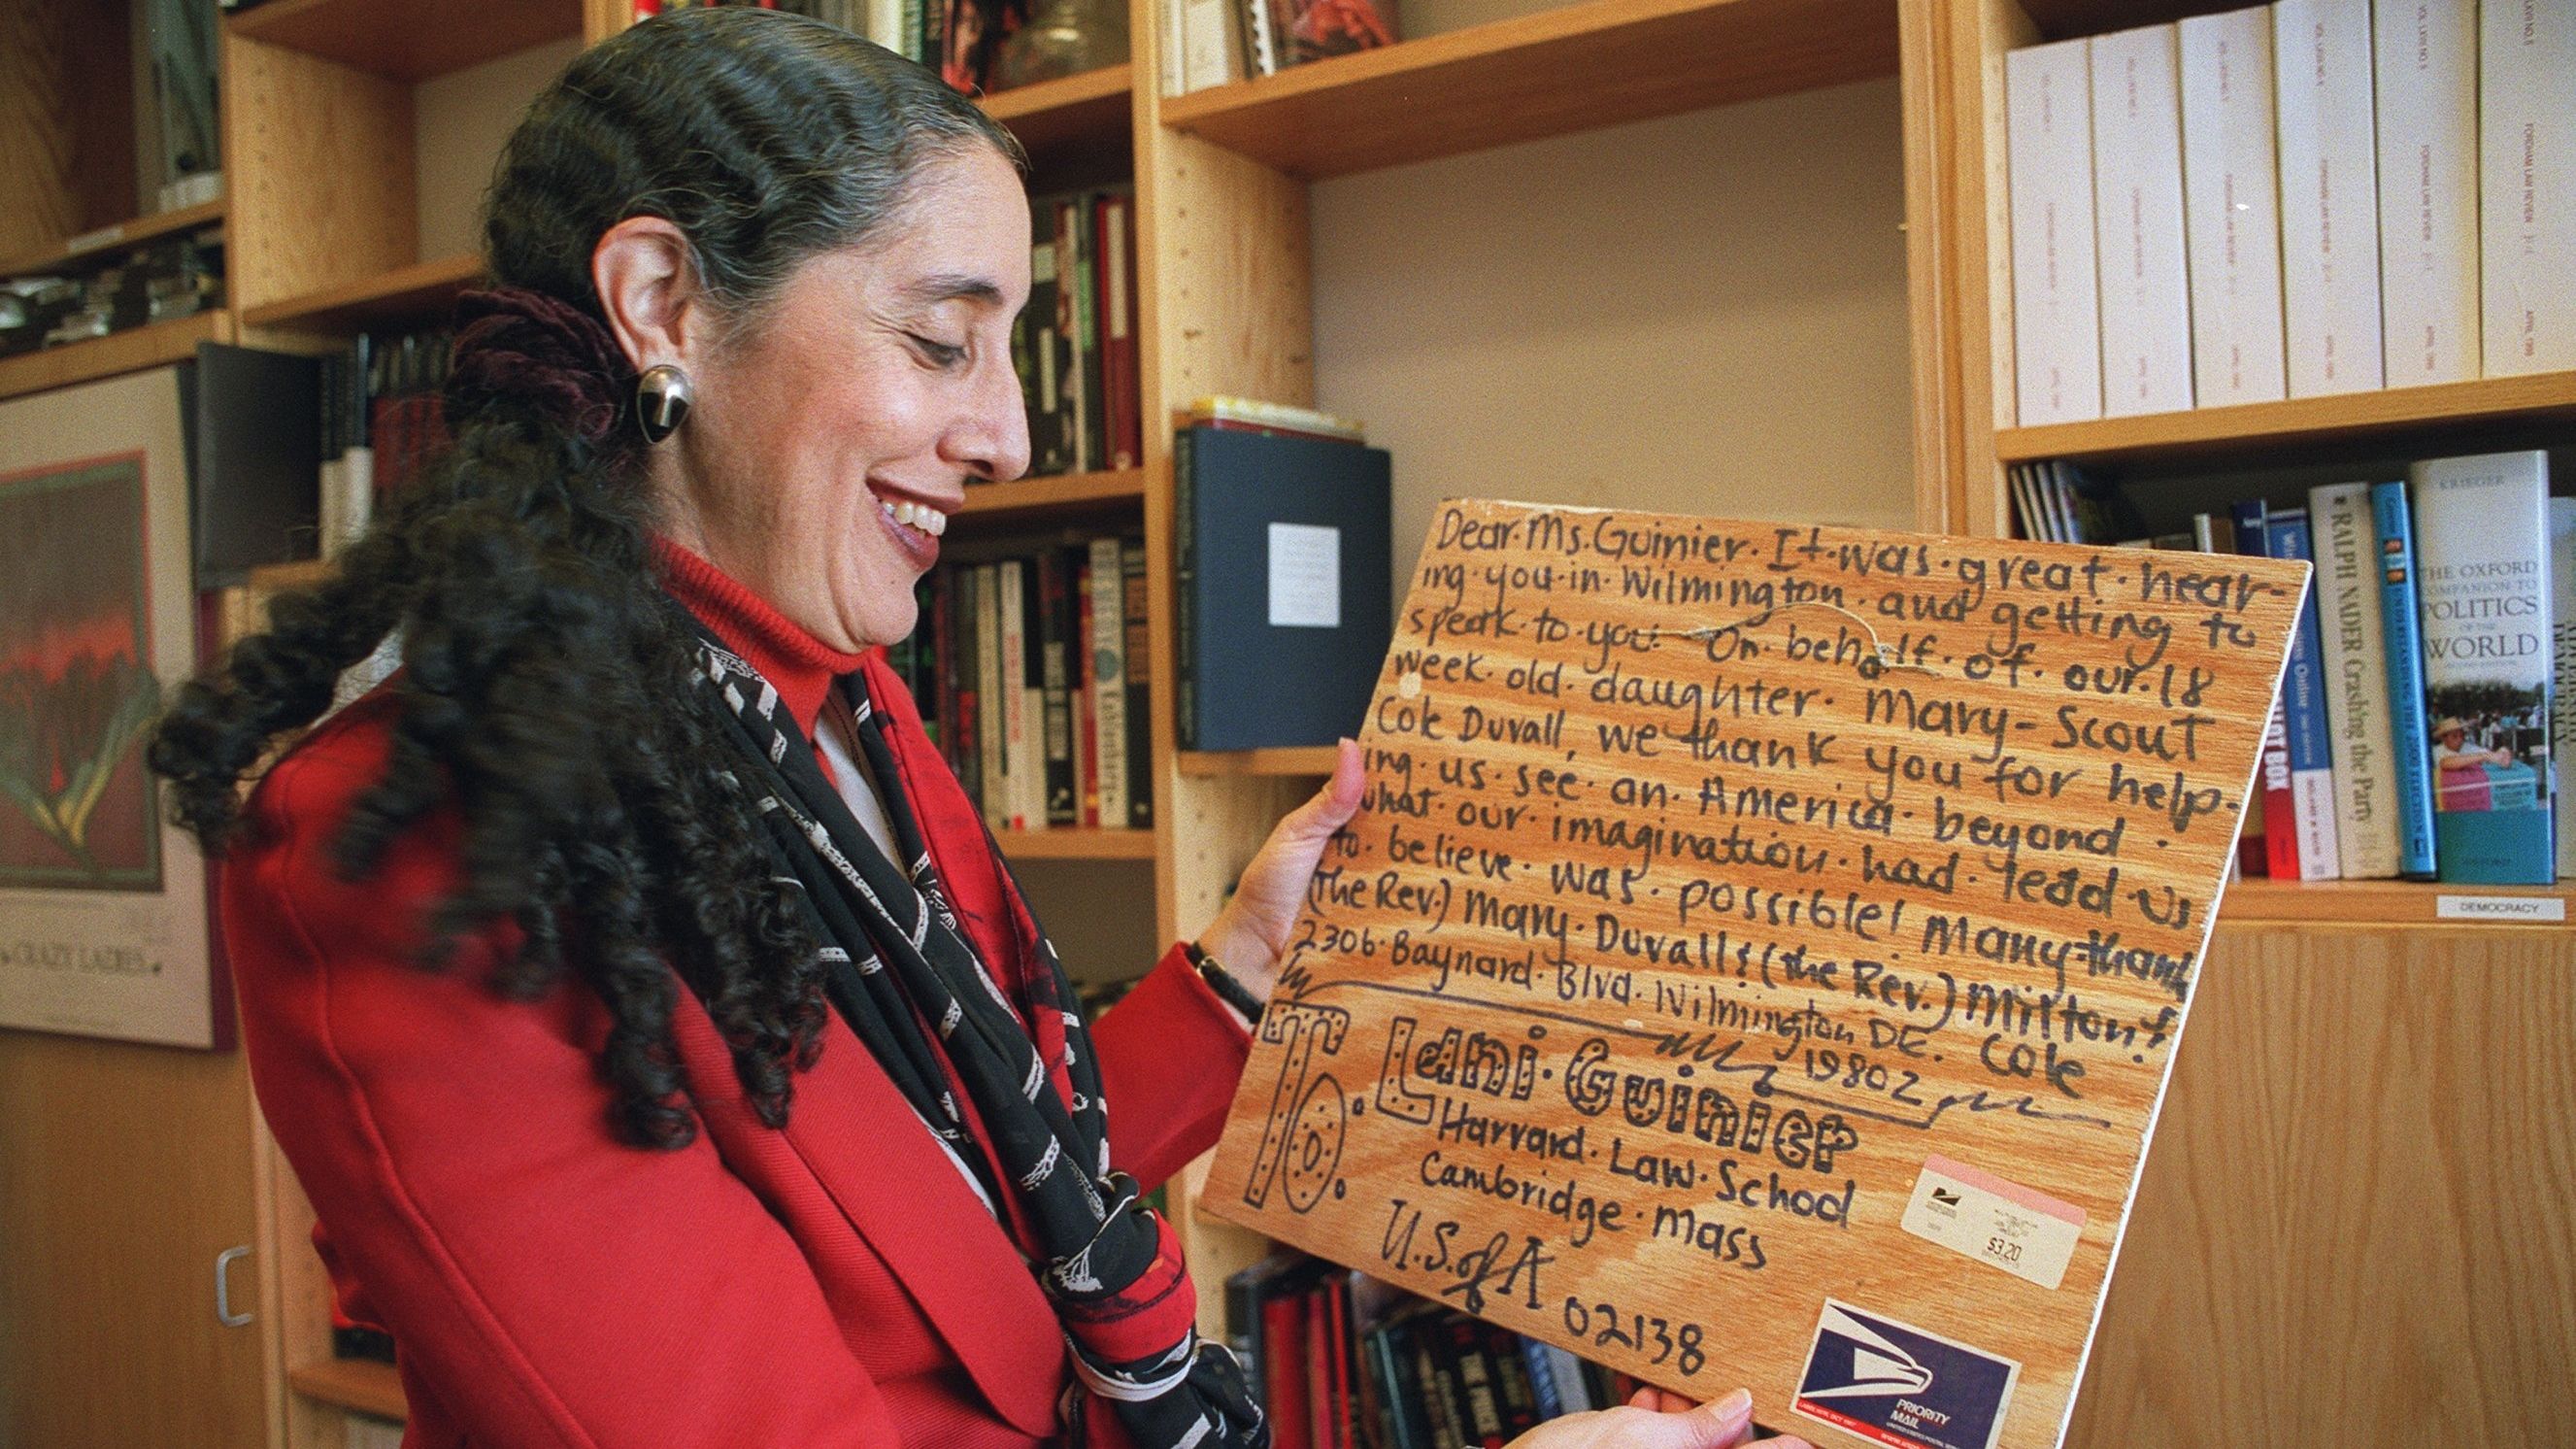 Dear·Ms.Guinier·It·was·great·hear-
ing·you·in·Wilmington·and getting to
speak·to·you·— On·behalf·of·our·18
week·old·daughter·Mary-Scout
Cole Duvall, we thank you for help-
ing·us·see·an·America·beyond·
what·our·imagination·had·lead·us
to·believe·was·possible! Many·thank
(the Rev.) Mary·Duvall & (the Rev.) Milton &
2306·Baynard·Blvd·Wilmington DE. Cole
19802
To: Lani·Guinier
Harvard·Law·School
Cambridge·Mass
U.S. of A
02138
$3.20
PRIORITY
MAIL
UNITED STATES POSTAL
CRAZY LADIES
KRIEGER
THE OXFORD
COMPANION TO
POLITICS
OF THE
WORLD
OXFORD
RALPH NADER Crashing the Party
DEMOCRACY
FORDHAM LAW REVIEW
APRIL